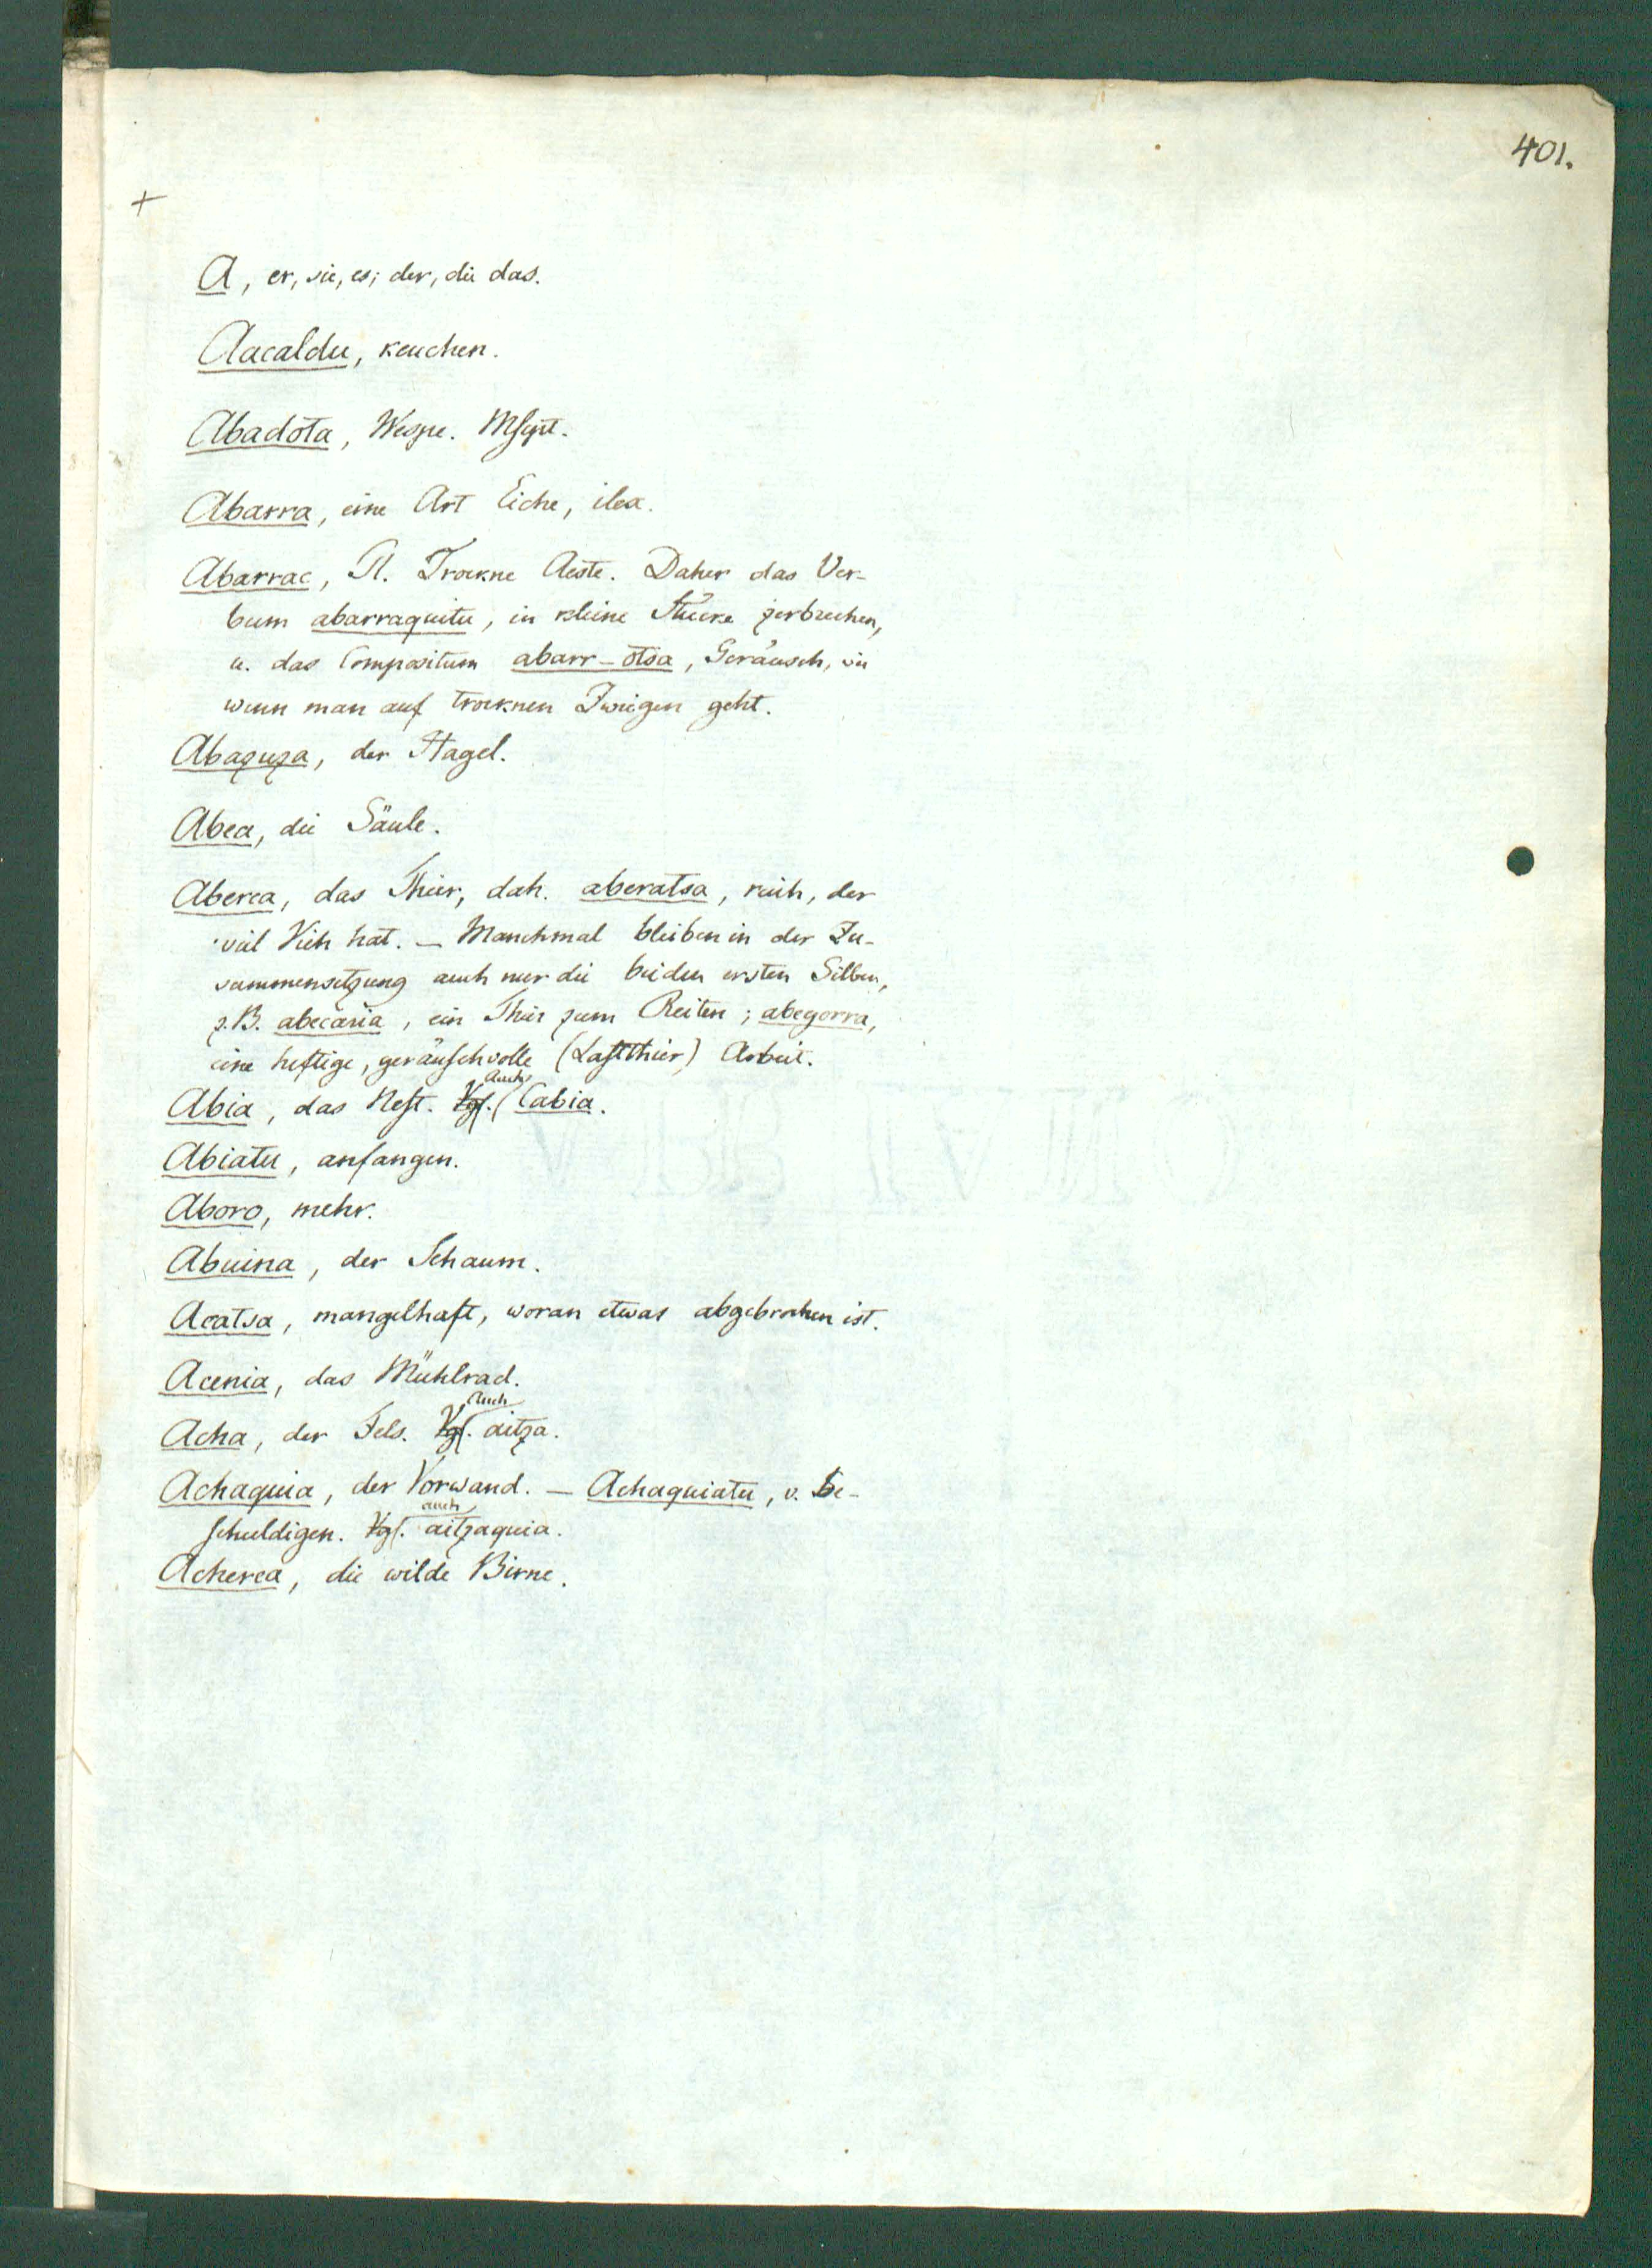 401.
+
A, er, sie, es; der, die das.
Aacaldu, keuchen.
Abadota, Wespe. Mscpt.
Abarra, eine Art Eiche, ilex.
Abarrac, Pl. Trockne Aeste. Daher das Ver-
bum abarraquitu, in kleine Stücke zerbrechen,
u. das Compositum abarr-otsa, Geräusch, wie
wenn man auf trocknen Zweigen geht.
Abazuza, der Hagel.
Abea, die Säule.
Aberea, das Thier, dah. aberatsa, reich, der
viel Vieh hat. – Manchmal bleiben in der Zu-
sammensetzung auch nur die beiden ersten Silben,
z.B. abecaria, ein Thier zum Reiten; abegorra,
eine heftige, geräuschvolle (Lastthier) Arbeit.
Abia, das Nest. Vgl. Auch Cabia.
Abiatu, anfangen.
Aboro, mehr.
Abuina, der Schaum.
Acatsa, mangelhaft, woran etwas abgebrochen ist.
Acenia, das Mühlrad.
Acha, der Fels. Vgl. Auch aitza.
Achaquia, der Vorwand. – Achaquiatu, v. be-
schuldigen. Vgl. auch aitzaquia.
Acherea, die wilde Birne.